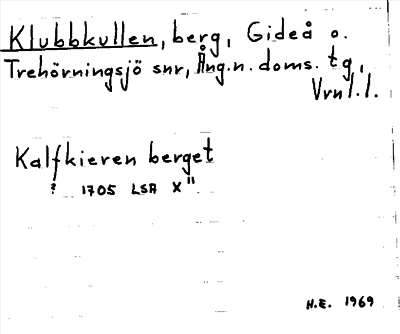 Klubbkullen, berg, Gideå o.
Trehörningsjö snr, Ång.n. doms. tg,
Vrnl.l.
Kalfkieren berget
? 1705 LSA X"
H.E. 1969